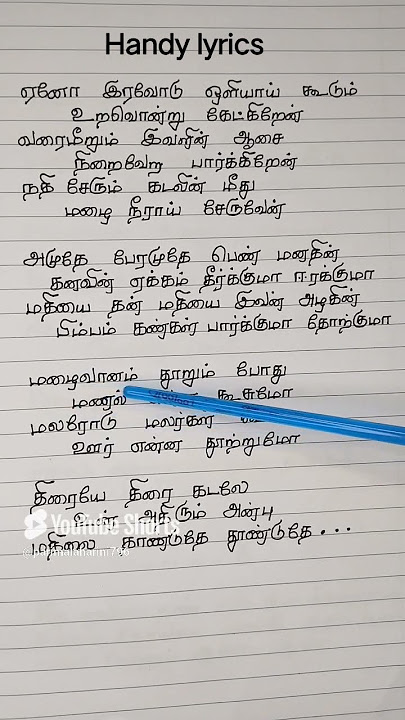 Handy lyrics
ஏனோ இரவோடு ஒளியாய் கூடும்
உறவொன்று கேட்கிறேன்
வரைமீறும் இவளின் ஆசை
நிறைவேற பார்க்கிறேன்
நதி சேரும் கடலின் மீது
மழை நீராய் சேருவேன்
அமுதே பேரமுதே பெண் மனதின்
கனவின் ஏக்கம் தீர்க்குமா ஈர்க்குமா
மதியை தன் மதியை இவன் அழகின்
பிம்பம் கண்கள் பார்க்குமா தோற்குமா
மழைவானம் தூறும் போது
மணல் கூசுமோ
மலரோடு மலர்கள்
ஊர் என்ன தூற்றுமோ
திரையே திரை கடலே
உன் அதிரும் அன்பு
மதிலை தாண்டுதே தூண்டுதே...
YouTube Shorts